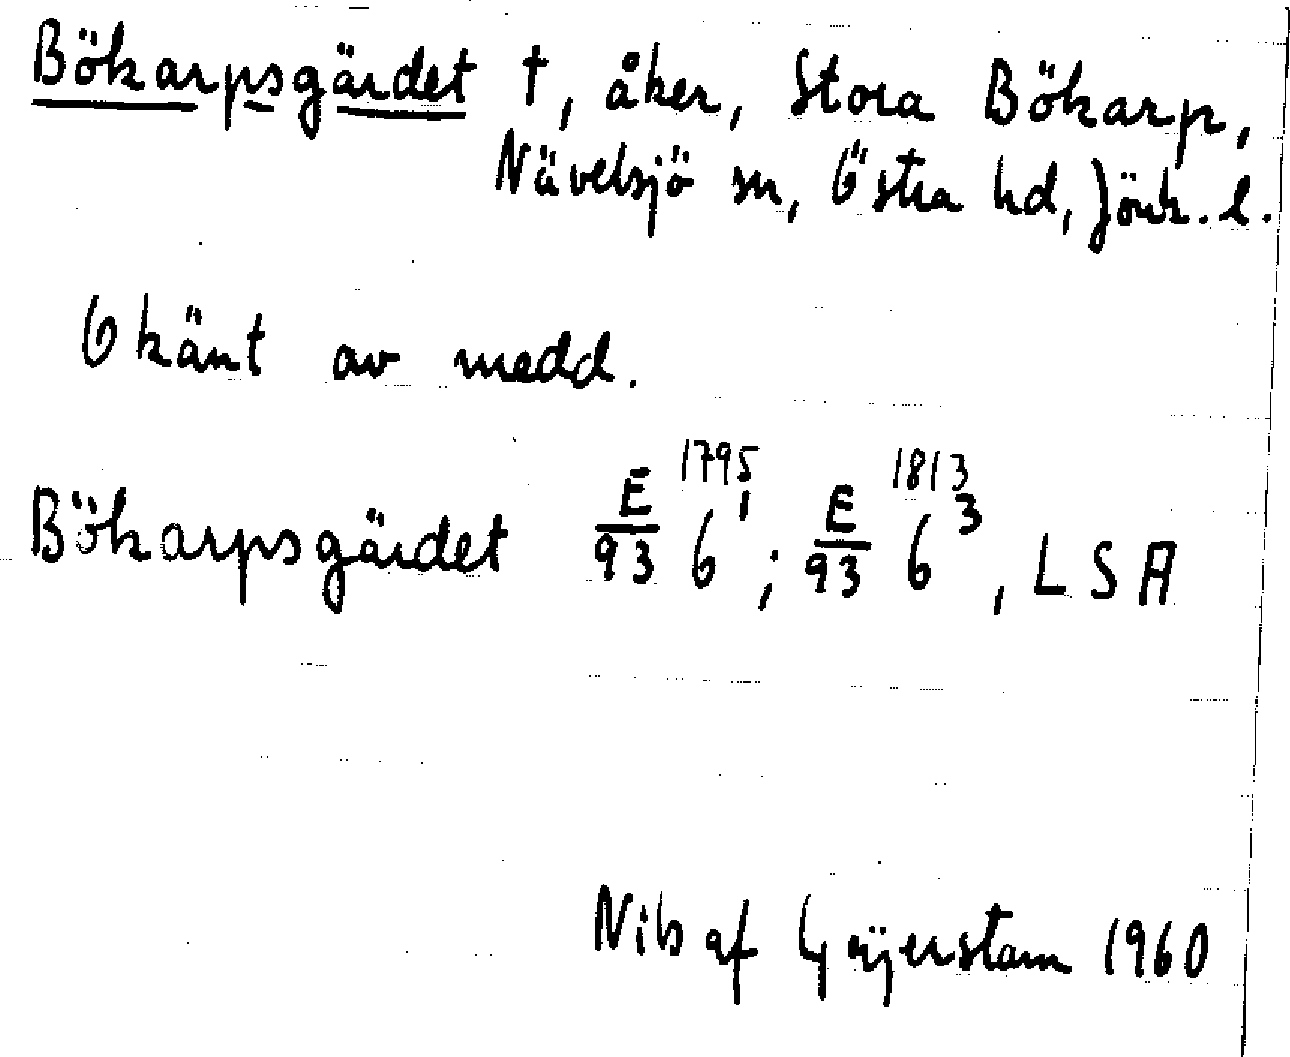 Bökarpsgärdet †, åker, Stora Bökarp,
Nävelsjö sn, Östra hd, Jönk. l.
Okänt av medd.
Bökarpsgärdet E/93 6¹ 1795; E/93 6³ 1813, LSA
Nils af Geijerstam 1960